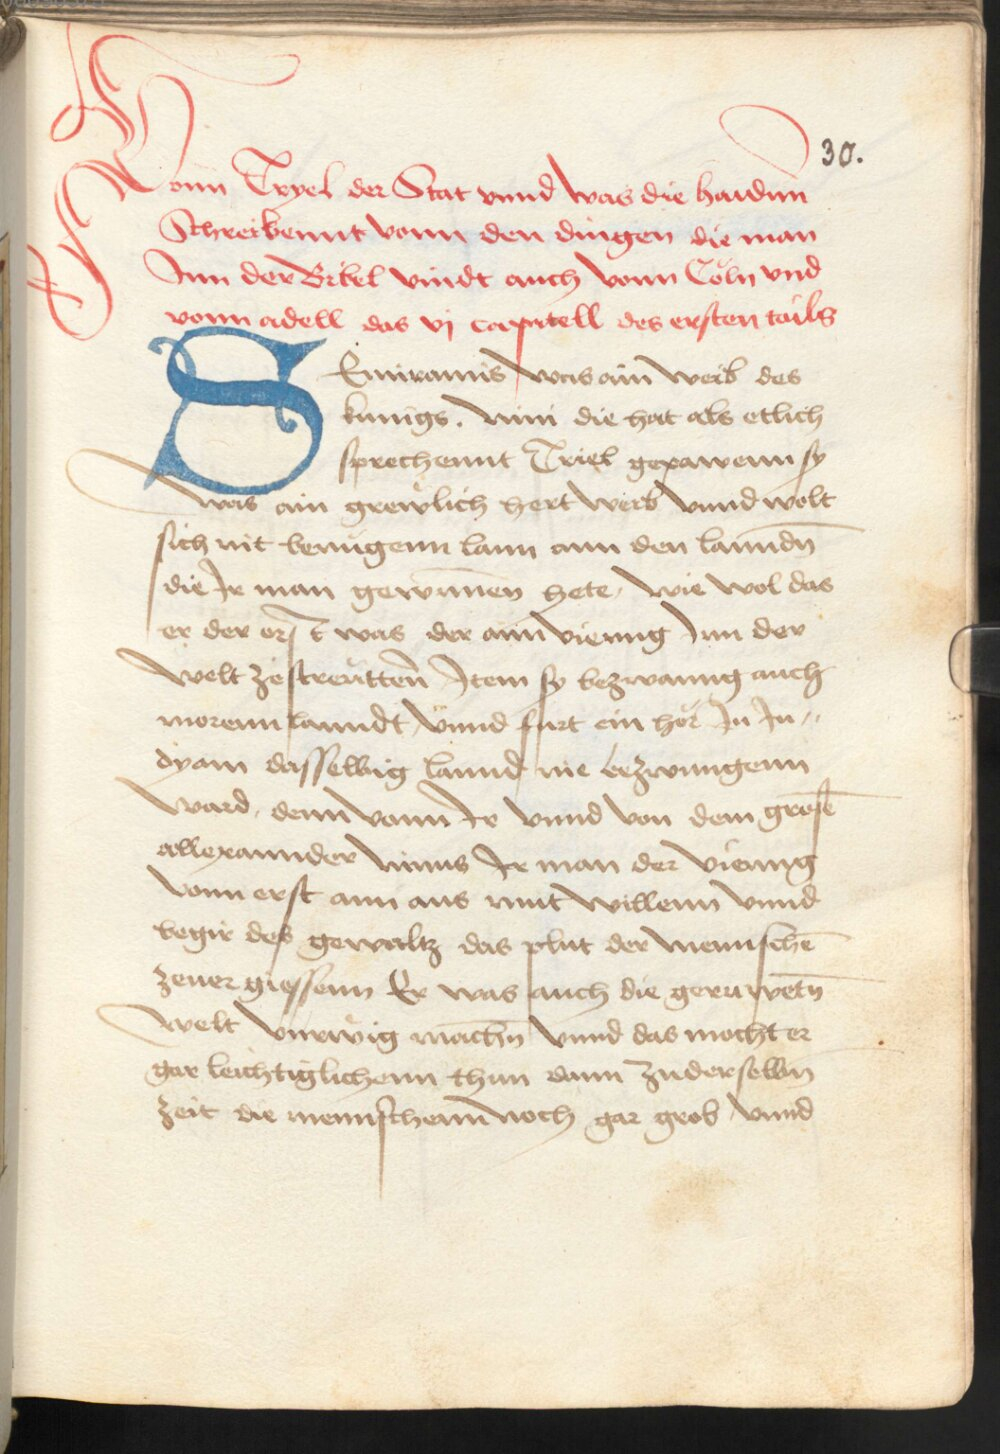 30.
Vonn Tryel der Stat vnnd was die haidnn
Schreibennt vonn den dingen die man
Inn der Bibel vindt auch vonn Cöln vnd
vonn adell das vj capitell des ersten tails
SEmiramis was ain weib des
kunigs. nini die hat als etlich
sprechennt Triel gepawenn sy
was ain grewlich hert weib vnnd wolt
sich nit benügenn lann ann den lanndn̄
die Ir man gewūnen hete, wie wol das
er der erst was der ann vienng Inn der
welt ze streüttenn̄ Item sy bezwanng auch
morenn lanndt, vnnd furt ein hör In In,,
dyam dasselbig lannd nie bezwungenn
ward, denn vonn Ir vnnd von dem groß̄e
allexannder ninus Ir man der vienng
vonn erst ann aus mut willenn vnnd
begir des gewaltz das plut der mennschē
zeuergiessenn Er was auch die geruwetn̄
welt vnrwig machn̄ vnnd das mocht er
gar leichtiglichenn thun dann zuderselbn̄
zeit die mennschenn noch gar grob vnnd